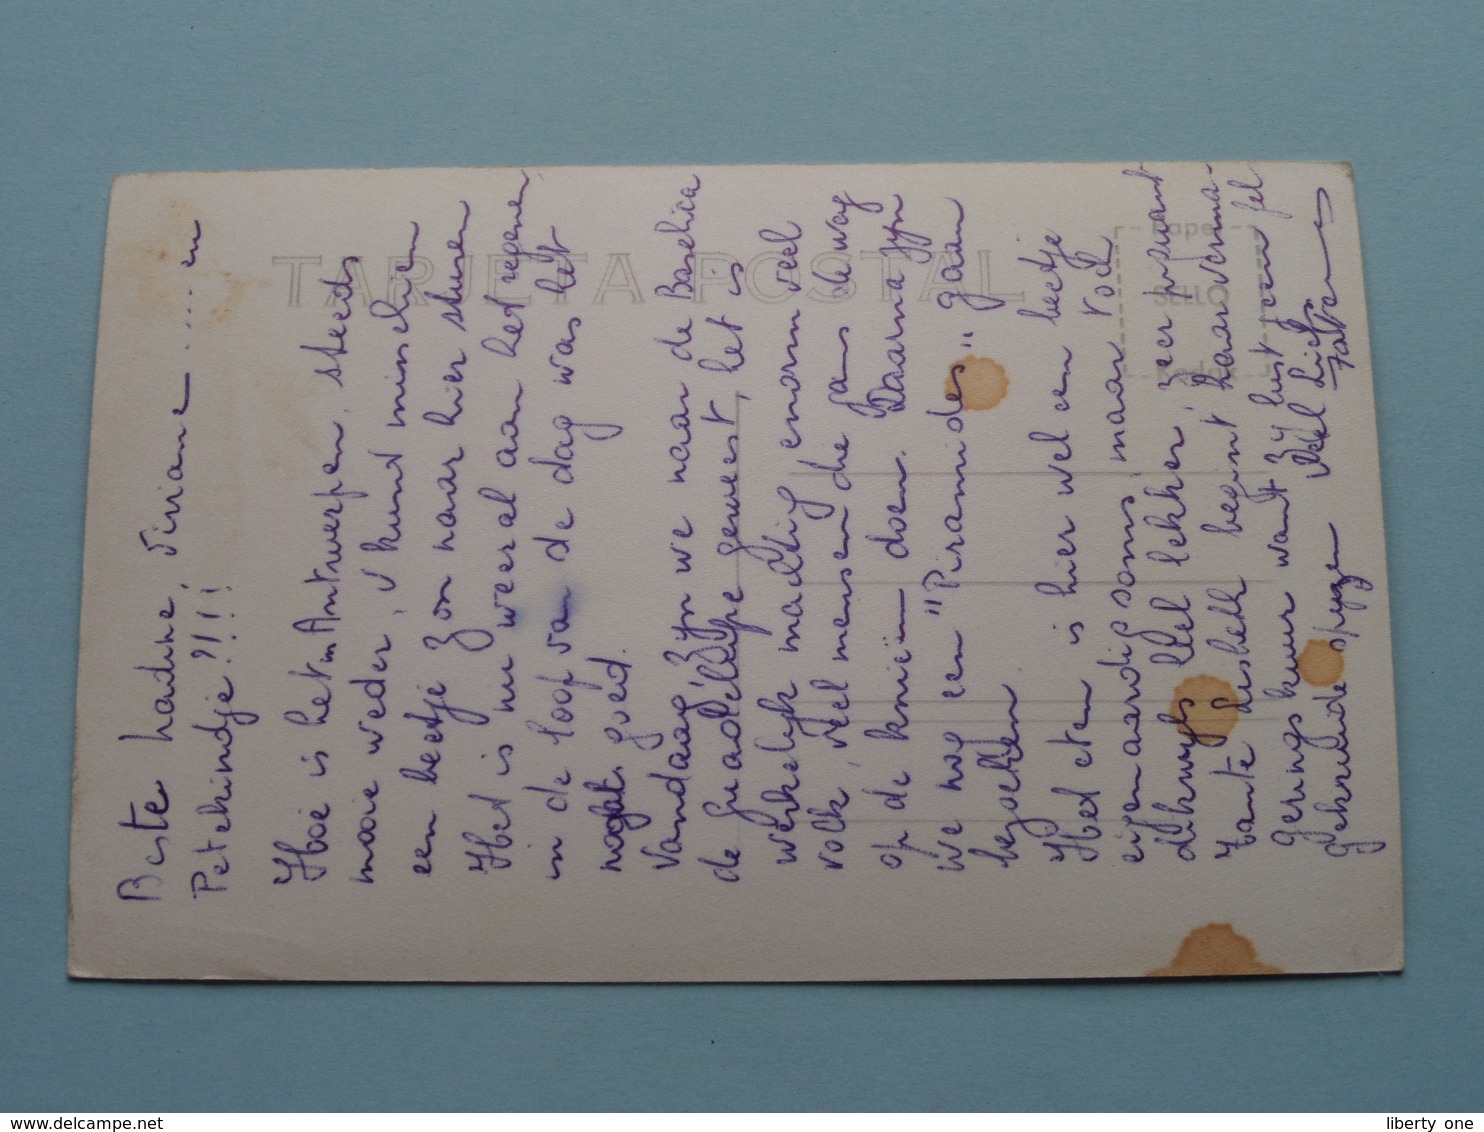 Beste Nadine, Viviane ...... en
Petekindje?!!!
Hoe is het in Antwerpen, steeds
mooie weder, U kunt misschien
een beetje zon naar hier sturen
Het is nu weeral aan het regenen
in de loop van de dag was het
nogtans goed.
Vandaag zyn we naar de Basilica
de Guadeluppe geweest, het is
werkelyk machtig enorm veel
volk, veel mensen die gans de weg
op de knieën doen. Daarna zyn
we nog een "Piramides" gaan
bezoeken
Het eten is hier wel een beetje
eigenaardig soms, maar ook
dikwyls veel lekker, zeer pikant
tante Lisbeth begint haar verma-
gerings kuur want zy lust een fel
gekruide spyzen Veel liefs
TARJETA POSTAL
Papel
SELLO
Kodak
liberty one
www.delcampe.net